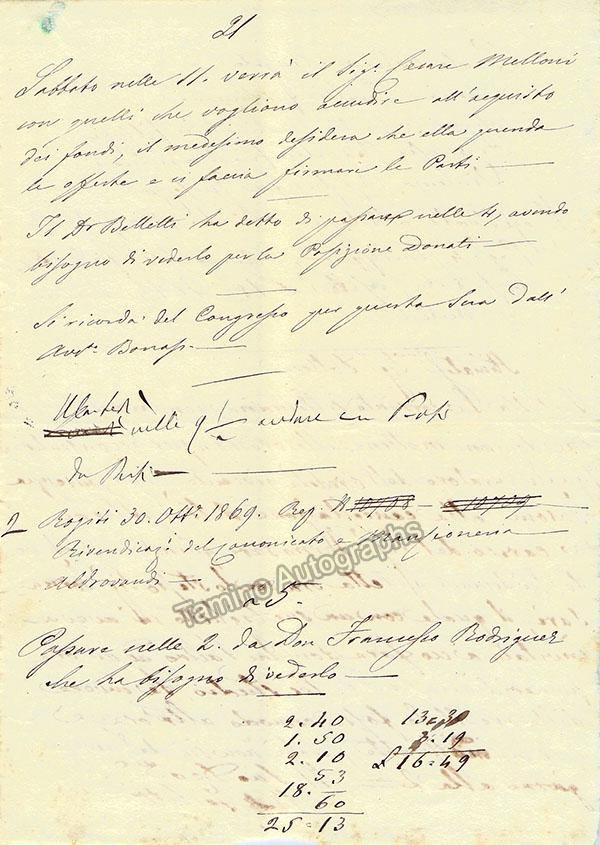 21
Sabbato nelle 11. verrà il Sigr. Cesare Melloni
con quelli che vogliono accudire all'acquisto
dei fondi, il medesimo dessidera che ella prenda
le offerte e ci faccia firmare le Parti
Il Dr Belletti ha detto di passare nelle 4, avendo
bisogno di vederlo per la Posizione Donati
Si ricorda del Congresso per questa Sera dall'
Avvto. Bonasi.
nelle 9 1/2 andare
da
2 Rogiti 30. Ottr. 1869. Rep. N 10708 - 10709
Rivendicazi. del Canonicato e Mansioneria
Aldrovandi
a 5.
Passare nelle 2. da Don Francesco Rodriguez
che ha bisogno di vederlo
2.40 13.30
1.50 3.19
2.10 £ 16.49
53
18.
60
25-13
Tamino Autographs